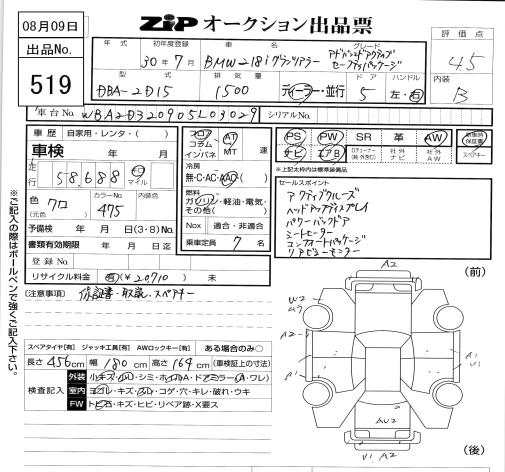 08月09日
ZIP オークション出品票
出品No.
519
評価点
4.5
内装
B
年式
初年度登録
車名
グレード
30年7月
BMW218i グランツアラー
アドバンスドアクティブ
セーフティパッケージ
型式
排気量
ドア
ハンドル
DBA-2D15
1500
ディーラー・並行
5
左・右
車台No.
WBA2D320905L03029
シリアルNo.
車歴
自家用・レンタ( )
車検
年 月
走行
58,688
Km
マイル
色
クロ
(元色 )
カラーNo
475
内装色
予備検 年 月 日(3・8)No.
書類有効期限 年 月 日迄
登録No.
リサイクル料金 有(¥20,710) 未
フロア
コラム
インパネ
AT
MT
速
冷房
無・C・AC・AAC
燃料
ガソリン・軽油・電気・
その他( )
Nox
適合・非適合
乗車定員 7 名
PS
PW
SR
革
AW
新車時保証書
ナビ
エアB
社外ナビ
社外AW
スペアキー
※上記太枠内は標準装備品
セールスポイント
アクティブクルーズ
ヘッドアップディスプレイ
パワーバックドア
シートヒーター
コンフォートパッケージ
リアビューモニター
[注意事項]
保証書・取説・スペアキー
スペアタイヤ[有] ジャッキ工具[有] AWロックキー[有] ある場合のみ○
長さ 456cm 幅 180cm 高さ 164cm (車検証上の寸法)
検査記入
外装
小キズ・小凹・シミ・ホイルA・ドアミラー(A・ワレ)
室内
ヨゴレ・キズ・スレ・コゲ・穴・キレ・破れ・ウキ
FW
トビ石・キズ・ヒビ・リペア跡・X要ス
※ご記入の際はボールペンで強くご記入下さい。
(前)
A2
W2
A2
A1
A1
V1
AU2
V1 A2
(後)